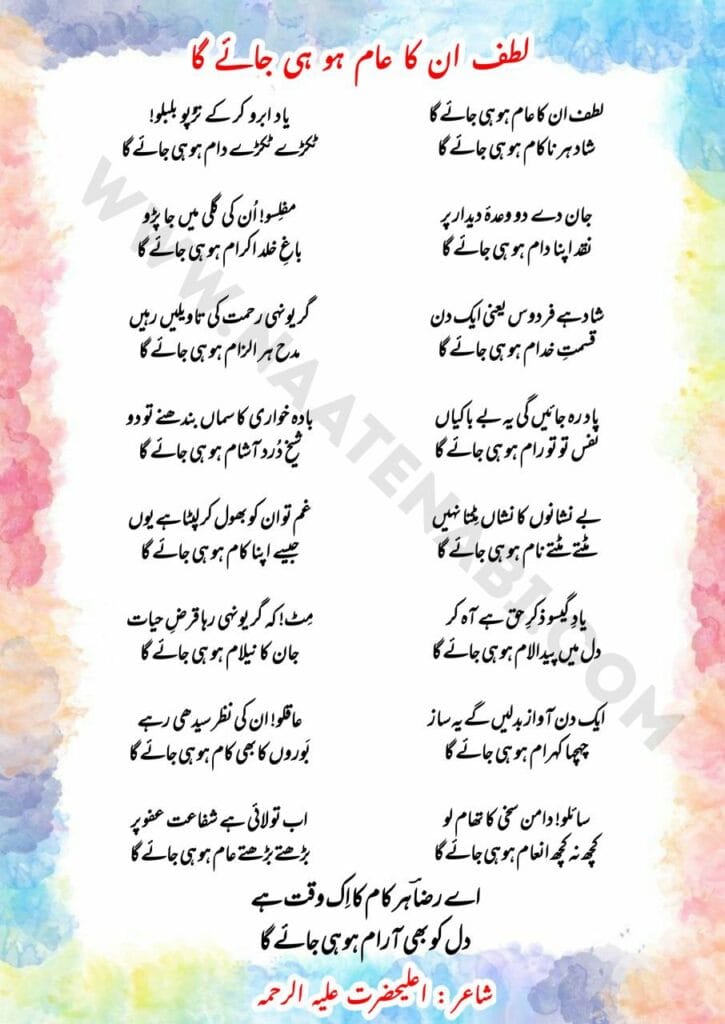 لطف ان کا عام ہو ہی جائے گا
لطف ان کا عام ہو ہی جائے گا
شاد ہر ناکام ہو ہی جائے گا
جان دے دو وعدۂ دیدار پر
نقد اپنا دام ہو ہی جائے گا
شاد ہے فردوس یعنی ایک دن
قسمتِ خدام ہو ہی جائے گا
یاد رہ جائیں گی یہ بے باکیاں
نفس تو تو رام ہو ہی جائے گا
بے نشانوں کا نشاں مِٹتا نہیں
مٹتے مٹتے نام ہو ہی جائے گا
یادِ گیسو ذکرِ حق ہے آہ کر
دل میں پیدا لام ہو ہی جائے گا
ایک دن آواز بدلیں گے یہ ساز
چہچہا کہرام ہو ہی جائے گا
سائلو! دامن سخی کا تھام لو
کچھ نہ کچھ انعام ہو ہی جائے گا
یاد ابرو کر کے تڑپو بلبلو!
ٹکڑے ٹکڑے دام ہو ہی جائے گا
مفلِسو! اُن کی گلی میں جا پڑو
باغِ خلد اکرام ہو ہی جائے گا
گر یونہی رحمت کی تاویلیں رہیں
مدح ہر الزام ہو ہی جائے گا
بادہ خواری کا سماں بندھنے تو دو
شیخ دُرد آشام ہو ہی جائے گا
غم تو ان کو بھول کر لپٹا ہے یوں
جیسے اپنا کام ہو ہی جائے گا
مِٹ! کہ گر یونہی رہا قرضِ حیات
جان کا نیلام ہو ہی جائے گا
عاقلو! ان کی نظر سیدھی رہے
بَوروں کا بھی کام ہو ہی جائے گا
اب تو لائی ہے شفاعت عفو پر
بڑھتے بڑھتے عام ہو ہی جائے گا
اے رضاؔ ہر کام کا اِک وقت ہے
دل کو بھی آرام ہو ہی جائے گا
شاعر : اعلیحضرت علیہ الرحمہ
WWW.NAATENABI.COM